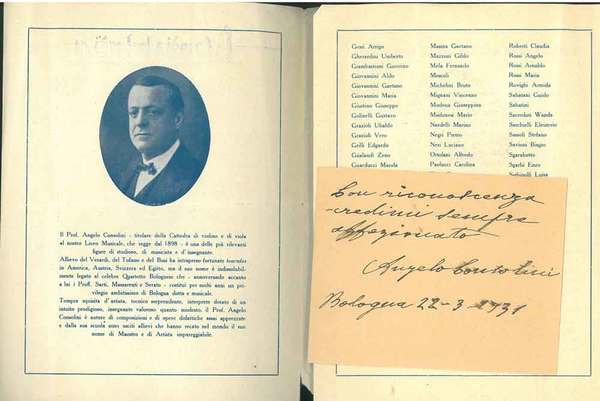 Il Prof. Angelo Consolini - titolare della Cattedra di violino e di viola
al nostro Liceo Musicale, che regge dal 1898 - è una delle più rilevanti
figure di studioso, di musicista e d'insegnante.
Allievo del Verardi, del Tofano e del Busi ha intrapreso fortunate tournées
in America, Austria, Svizzera ed Egitto, ma il suo nome è indissolubil-
mente legato al celebre Quartetto Bolognese che - annoverando accanto
a lui i Proff. Sarti, Massarenti e Serato - costituì per molti anni un pri-
vilegio ambitissimo di Bologna dotta e musicale.
Tempra squisita d'artista, tecnico sorprendente, interprete dotato di un
intuito prodigioso, insegnante valoroso quanto modesto, il Prof. Angelo
Consolini è autore di composizioni e di opere didattiche assai apprezzate
e dalla sua scuola sono usciti allievi che hanno recato nel mondo il suo
nome di Maestro e di Artista impareggiabile.
Gessi Arrigo
Gherardini Umberto
Giambastiani Guerrino
Giovannini Aldo
Giovannini Gaetano
Giovannini Maria
Giustini Giuseppe
Golinelli Gustavo
Grazioli Ubaldo
Grazioli Vero
Grilli Edgardo
Gualandi Zeno
Guarducci Manola
Masina Gaetano
Mazzoni Gildo
Mela Fernando
Mescoli
Michelini Bruto
Mignani Vincenzo
Modena Giuseppina
Modulana Mario
Nardelli Marino
Negri Pietro
Neri Luciano
Ortolani Alfredo
Paolucci Carolina
Roberti Claudia
Rossi Angelo
Rossi Arnaldo
Rossi Maria
Rovighi Armida
Sabatani Guido
Sabatini
Sacerdoti Wanda
Sarchielli Eleuterio
Sassoli Stefano
Savinni Biagio
Sgarabotto
Sgarbi Enzo
Sghinolfi Luisa
Con riconoscenza
credimi sempre
affezionato
Angelo Consolini
Bologna 22-3 1931